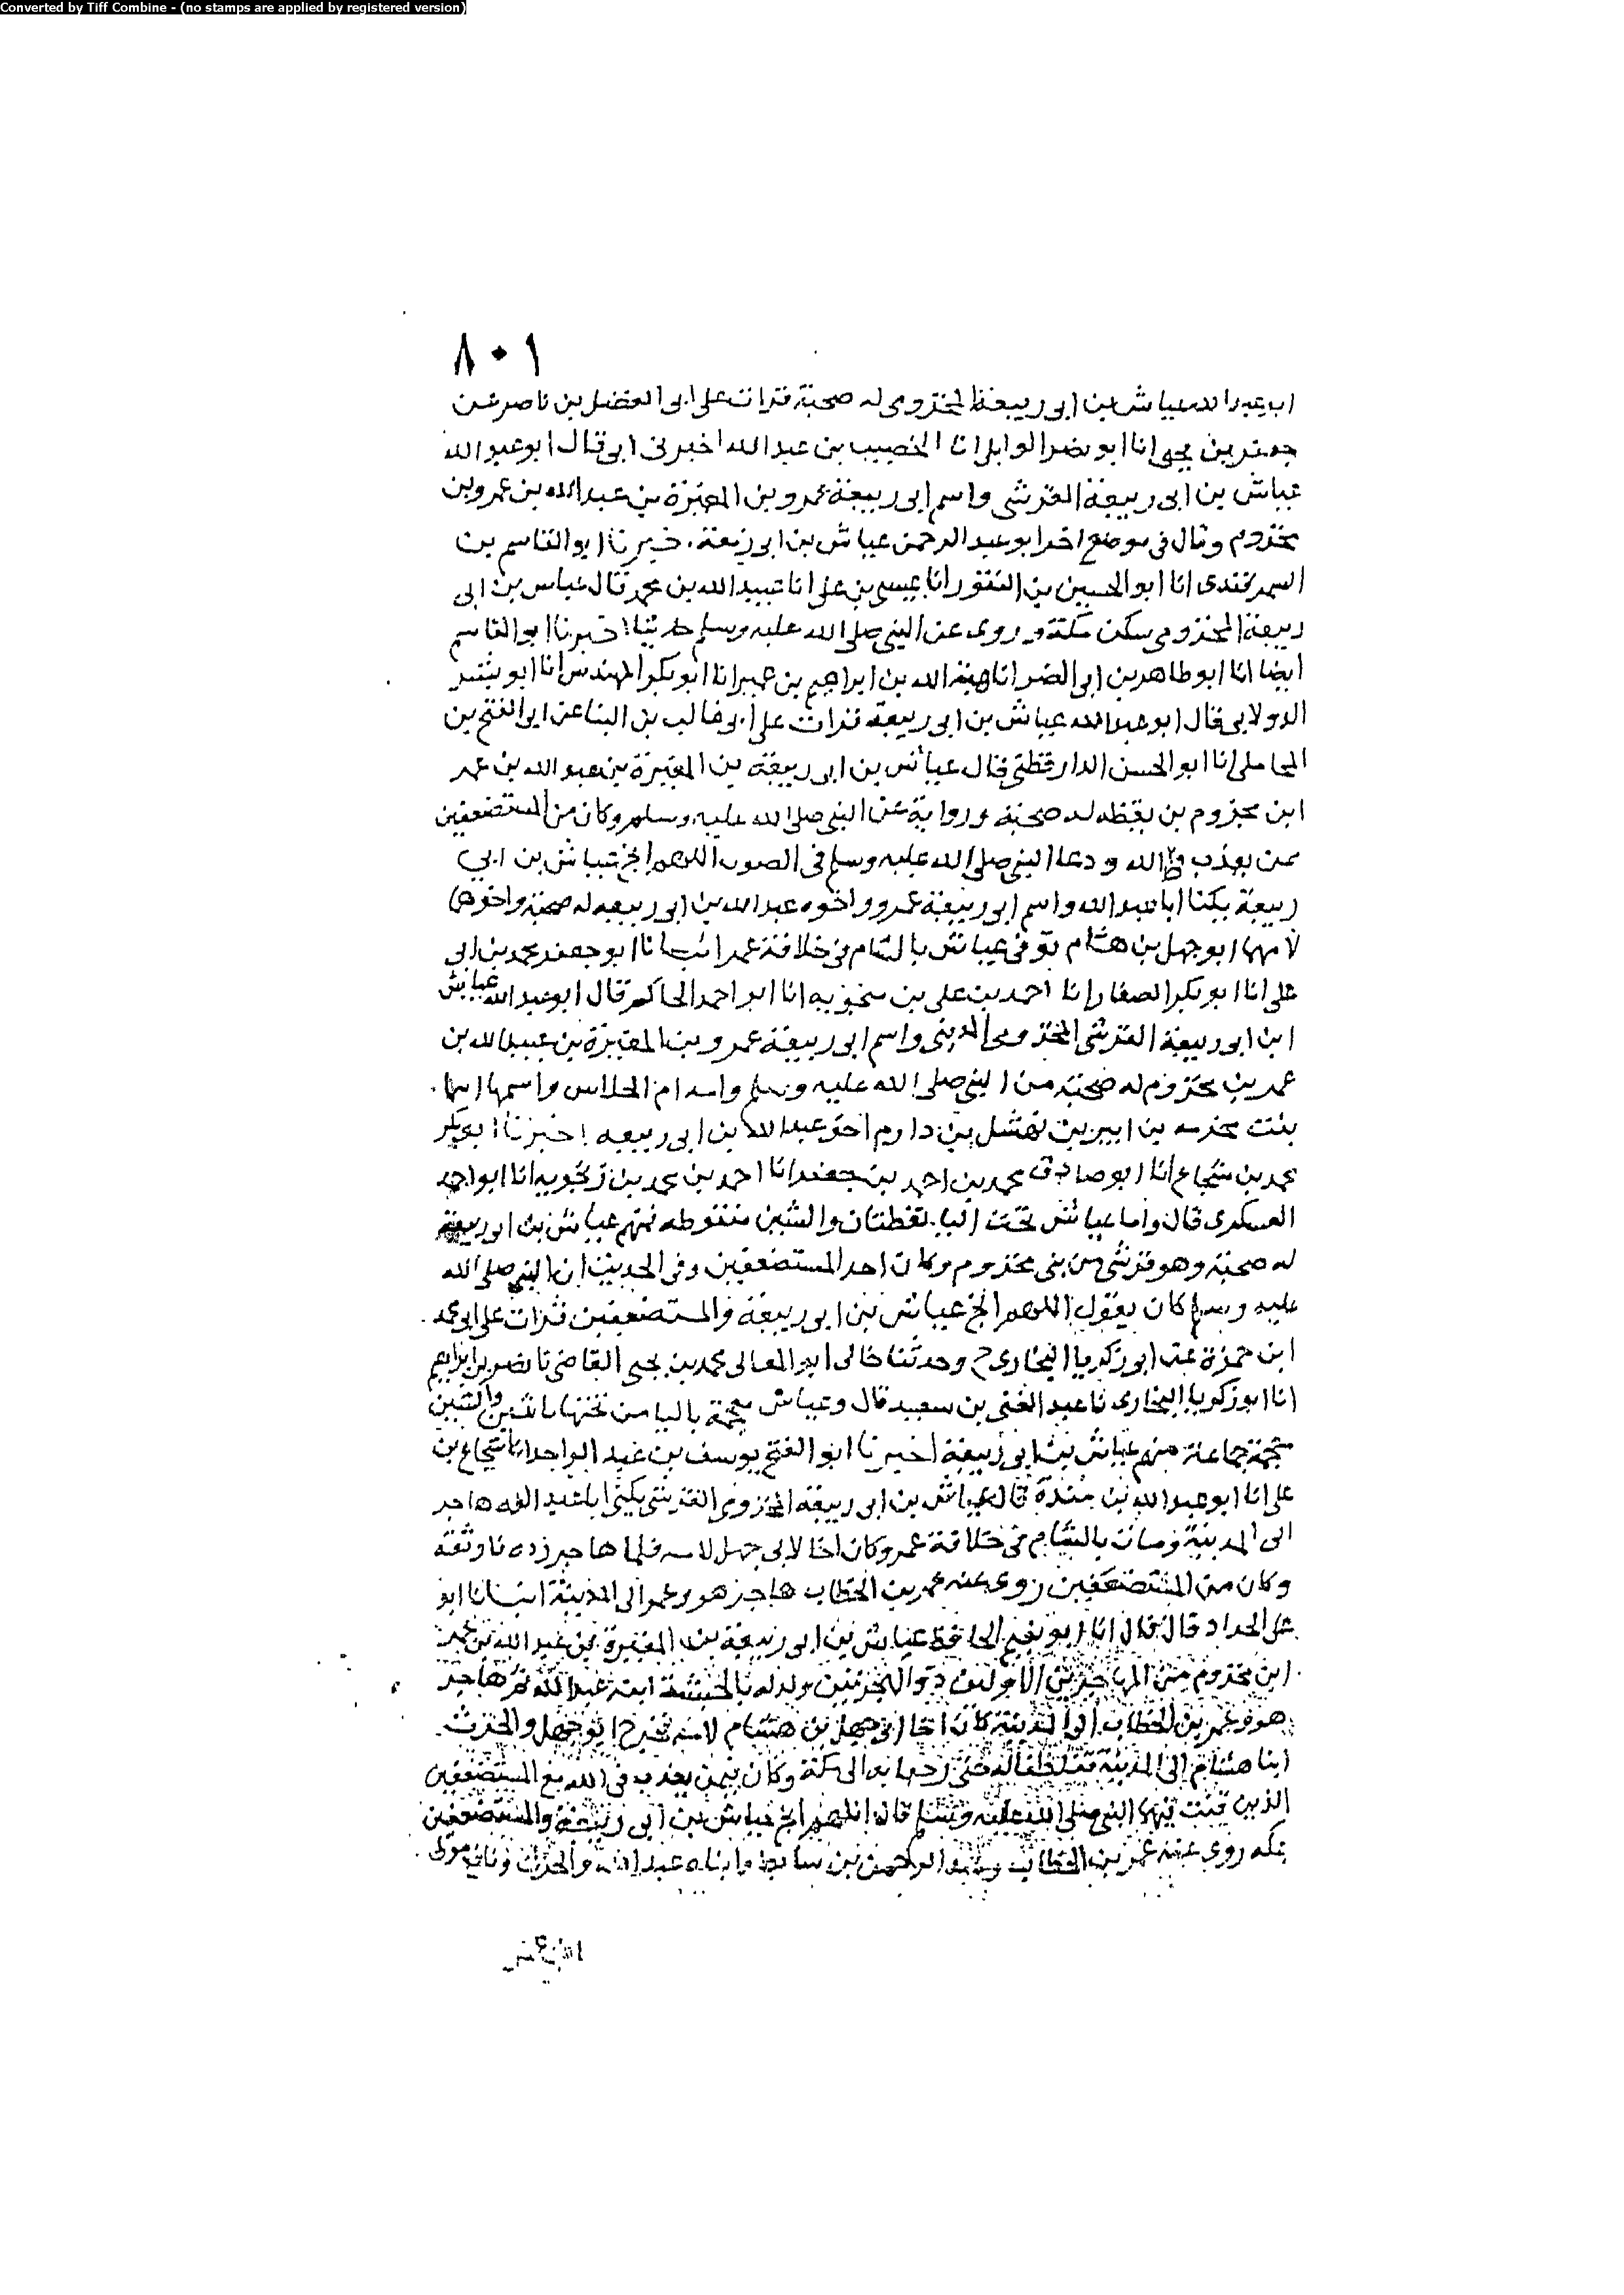 Converted by Tiff Combine - (no stamps are applied by registered version)
٨٠١
ابو عبد الله عياش بن ابى ربيعة المخزومى له صحبة قرات على ابى الفضل بن ناصر عن
جعفر بن يحيى انا ابو نصر الوايلى انا الخصيب بن عبد الله اخبرنى ابى قال ابو عبد الله
عياش بن ابى ربيعة القرشى واسم ابى ربيعة عمرو بن المغيرة بن عبد الله بن عمرو بن
مخزوم وقال فى موضع اخر ابو عبد الرحمن عياش بن ابى ربيعة . خبرنا ابو القاسم بن
السمرقندى انا ابو الحسين بن النقور انا عيسى بن على انا عبيد الله بن محمد قال عياس بن ابى
ربيعة المخزومى سكن مكة وروى عن النبى صلى الله عليه وسلم حديثا اخبرنا ابو القاسم
ايضا انا ابو طاهر بن ابى الصقر انا هبة الله بن ابراهيم بن عمر انا ابو بكر المهندس انا ابو بشر
الدولابى قال ابو عبد الله عياش بن ابى ربيعة قرات على ابى غالب بن البنا عن ابى الفتح بن
المحاملى انا ابو الحسن الدارقطنى قال عياش بن ابى ربيعة بن المغيرة بن عبد الله بن عمر
ابن مخزوم بن يقظه له صحبة ورواية عن النبى صلى الله عليه وسلم وكان من المستضعفين
ممن يعذب فى الله ودعا النبى صلى الله عليه وسلم فى اللهم انج عياش بن ابي
ربيعة يكنا ابا عبد الله واسم ابى ربيعة عمرو واخوه عبد الله بن ابى ربيعه له صحبة واخوهما
لامهما ابو جهل بن هشام توفى عياش بالشام فى خلافة عمر انبانا ابو جعفر محمد بن ابى
على انا ابو بكر الصفار انا احمد بن على بن منجويه انا ابو احمد الحاكم قال ابو عبد الله عياش
ابن ابى ربيعة القرشى المخزومى المدينى واسم ابى ربيعة عمرو بن المغيرة بن عبيد الله بن
عمر بن مخزوم له صحبة من النبى صلى الله عليه وسلم وامه ام الجلاس واسمها اسما.
بنت مخربه بن ابير بن نهشل بن دارم اخو عبد الله بن ابى ربيعه اخبرنا ابو بكر
محمد بن شجاع انا ابو صادق محمد بن احمد بن جعفر انا احمد بن محمد بن زنجويه انا ابو احمد
العسكرى قال واما عياش تحت اليا. نقطتان والشين منقوطه فمنهم عياش بن ابى ربيعة
له صحبة وهو قرشى من بنى مخزوم وكان احد المستضعفين وفى الحديث ان النبى صلى الله
عليه وسلم كان يقول اللهم انج عياش بن ابى ربيعة والمستضعفين قرات على ابى محمد
ابن حمزة عن ابى زكريا البخارى ح وحدثنا خالى ابو المعالى محمد بن يحيى القاضى نا نصر بن ابراهيم
انا ابو زكريا البخارى نا عبد الغنى بن سعيد قال وعياش معجمة باليا من تحتها باثنين والشين
معجمة جماعة منهم عياش بن ابى ربيعة اخبرنا ابو الفتح يوسف بن عبد الواحد انا شجاع بن
على انا ابو عبد الله بن مندة قال عياش بن ابى ربيعة المخزومى القرشى يكنى ابا عبد الله هاجر
الى المدينة ومات بالشام فى خلافة عمر وكان اخا لابى جهل لامه فلما هاجر رده فاوثقه
وكان من المستضعفين روى عنه عمر بن الخطاب هاجر هو وعمر الى المدينة انبانا ابو
على الحداد قال قال انا ابو نعيم الحافظ عياش بن ابى ربيعة بن المغيرة بن عبد الله بن عمر
ابن مخزوم من المهاجرين الاولين ذو الهجرتين ولد له بالحبشة ابنه عبد الله ثم هاجر
هو وعمر بن الخطاب الى المدينة كان اخا ابى جهل بن هشام لامه فخرج ابو جهل والحرث
ابنا هشام الى المدينة حتى رجعا به الى مكة وكان ممن يعذب فى الله مع المستضعفين
الذين قنت فيهم النبى صلى الله عليه وسلم قال اللهم انج عياش بن ابى ربيعة والمستضعفين
بمكه روى عنه عمر بن الخطاب وعبد الرحمن بن سابط وابناه عبد الله والحرث ونافع مولى